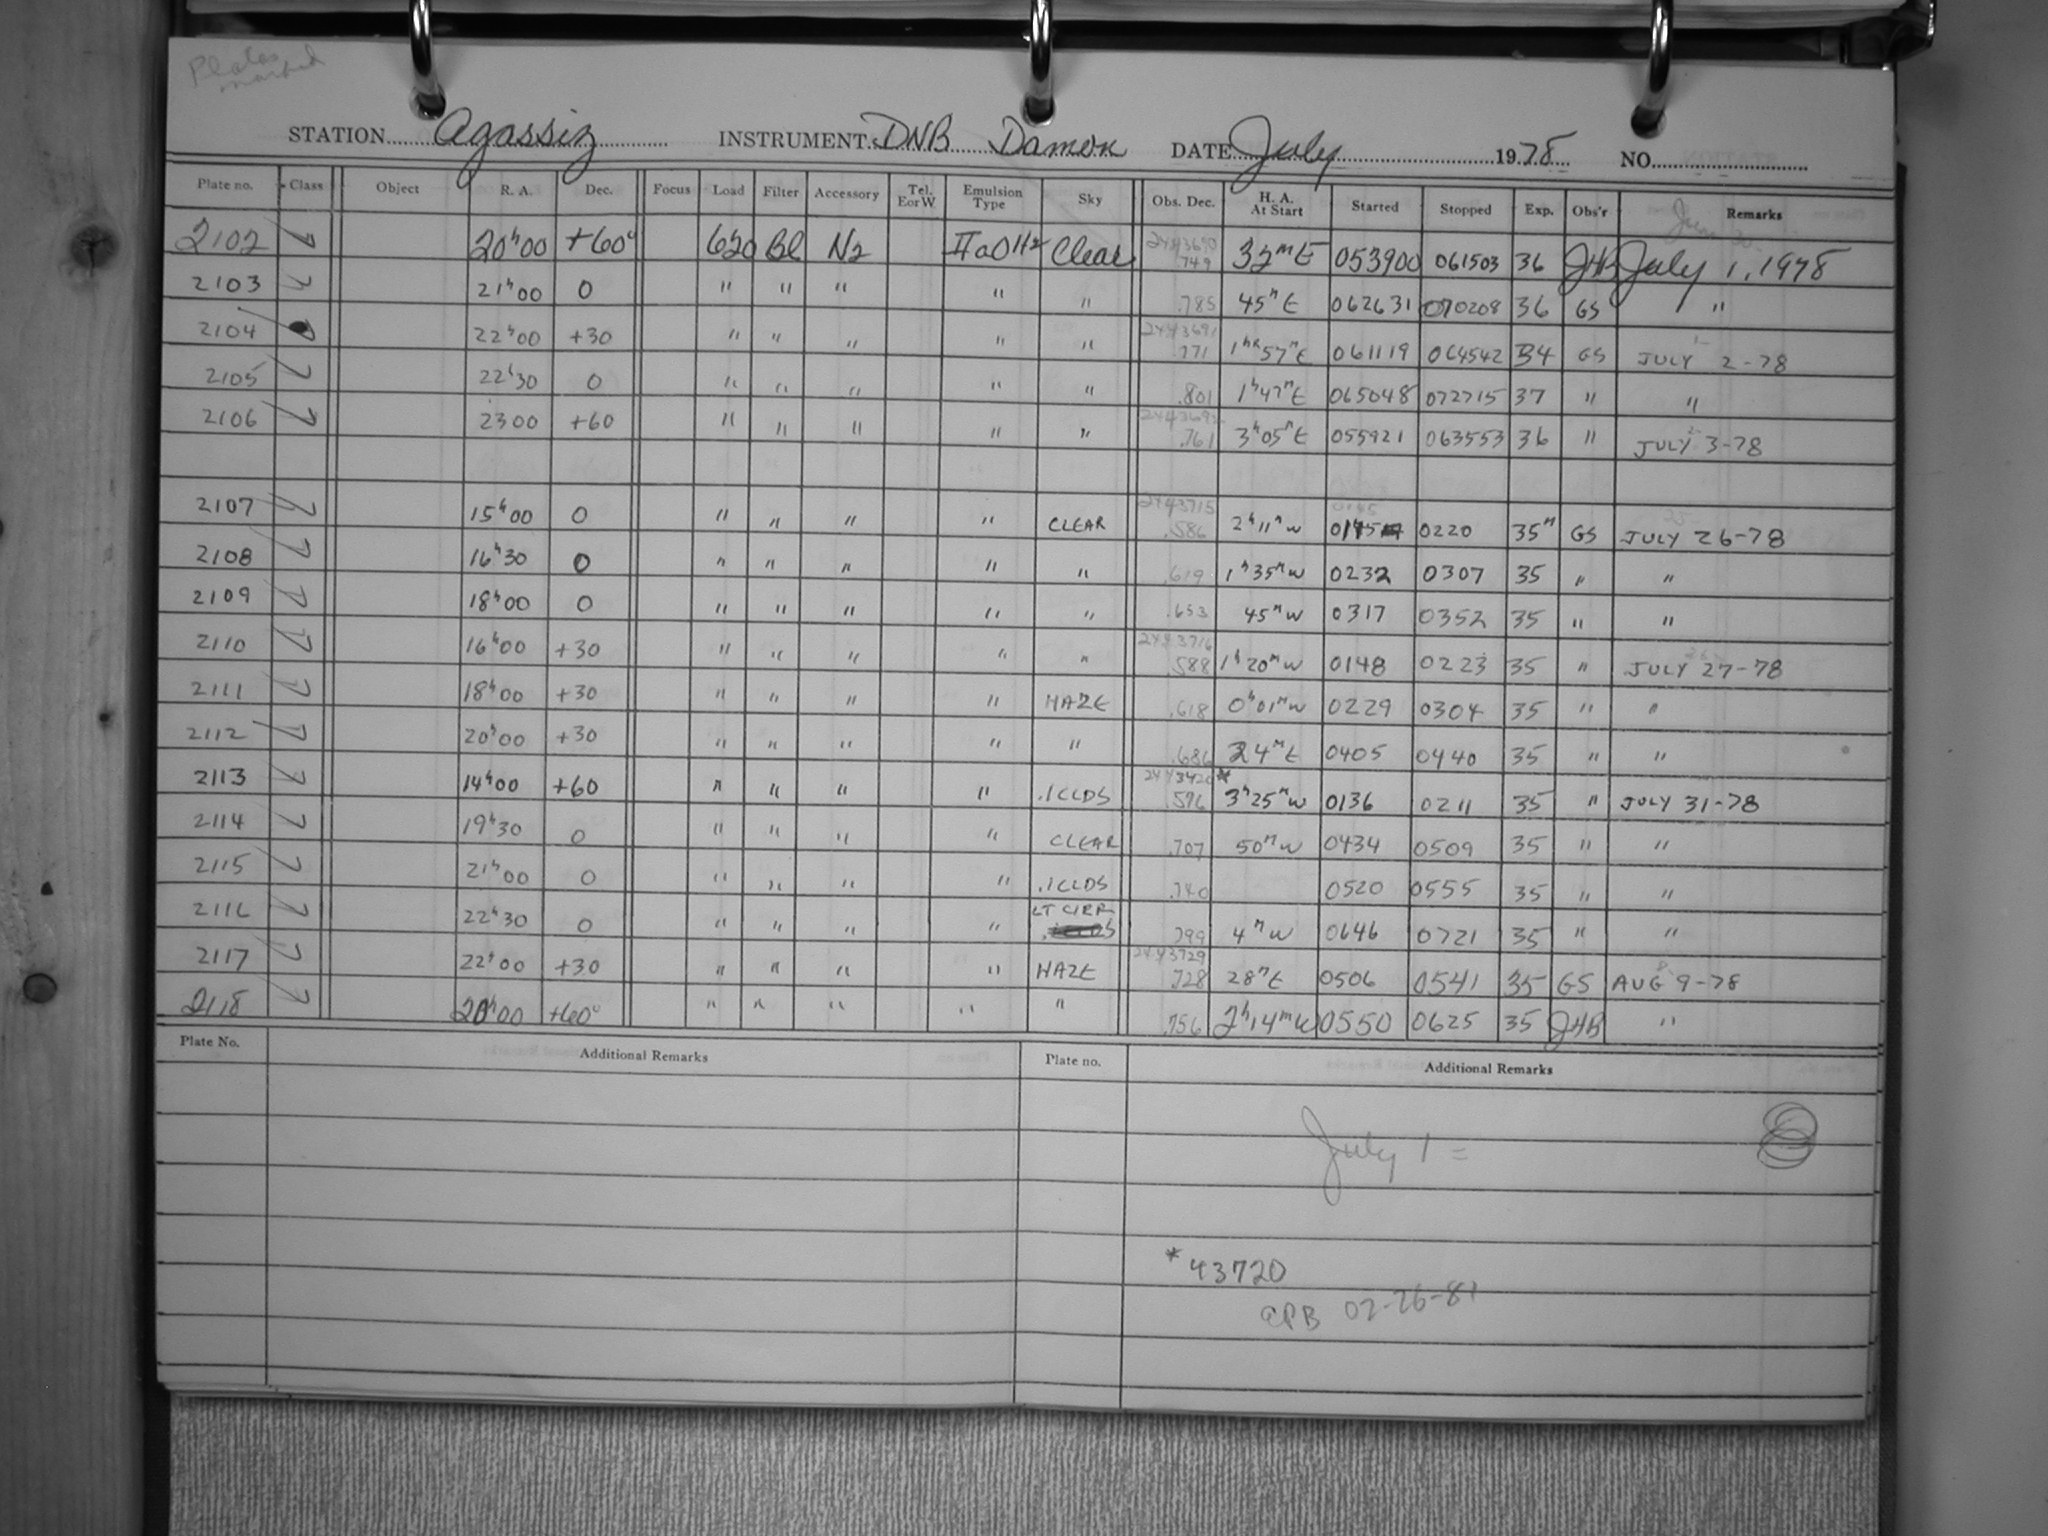 Plates marked
STATION Agassiz INSTRUMENT DNB Damon DATE July 1978 NO.
Plate no. Class Object R. A. Dec. Focus Load Filter Accessory Tel. E or W Emulsion Type Sky Obs. Dec. H. A. At Start Started Stopped Exp. Obs'r Remarks
2102 7 20h00 +60° 620 Bl N2 IIaOH2 Clear .749 32mE 053900 061503 36 JHB July 1, 1978
2103 7 21h00 0 " " " " " .785 45mE 062631 070208 36 GS "
2104 7 22h00 +30 " " " " " 2443691 .771 1hr57mE 061119 064542 34 GS JULY 2-78
2105 7 22h30 0 " " " " " .801 1h47mE 065048 072715 37 " "
2106 7 2300 +60 " " " " " .761 3h05mE 055921 063553 36 " JULY 3-78
2107 7 15h00 0 " " " " CLEAR 2443715 .586 2h11mW 0145 0145 0220 35m GS JULY 26-78
2108 7 16h30 0 " " " " " .619 1h35mW 0232 0307 35 " "
2109 7 18h00 0 " " " " " .653 45mW 0317 0352 35 " "
2110 7 16h00 +30 " " " " " 2443716 .588 1h20mW 0148 0223 35 " JULY 27-78
2111 7 18h00 +30 " " " " HAZE .618 0h01mW 0229 0304 35 " "
2112 7 20h00 +30 " " " " " .686 24mE 0405 0440 35 " "
2113 7 14h00 +60 " " " " .1CLDS 2443420* .576 3h25mW 0136 0211 35 " JULY 31-78
2114 7 19h30 0 " " " " CLEAR .707 50mW 0434 0509 35 " "
2115 7 21h00 0 " " " " .1CLDS .740 0520 0555 35 " "
2116 7 22h30 0 " " " " LT CIRR .799 4mW 0646 0721 35 " "
2117 7 22h00 +30 " " " " HAZE 2443729 .728 28mE 0506 0541 35 GS AUG 9-78
2118 7 20h00 +60° " " " " " .756 2h14mW 0550 0625 35 JHB "
Plate No. Additional Remarks Plate no. Additional Remarks
July 1 =
* 43720
02-26-81